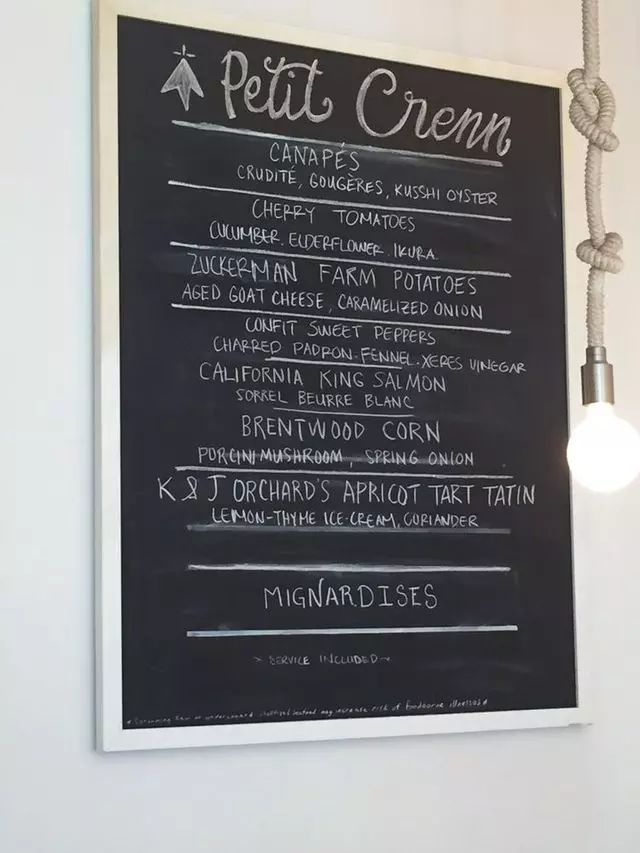 Petit Crenn
CANAPÉS
CRUDITÉ, GOUGÈRES, KUSSHI OYSTER
CHERRY TOMATOES
CUCUMBER. ELDERFLOWER. IKURA.
ZUCKERMAN FARM POTATOES
AGED GOAT CHEESE, CARAMELIZED ONION
CONFIT SWEET PEPPERS
CHARRED PADRON-FENNEL-XERES VINEGAR
CALIFORNIA KING SALMON
SORREL BEURRE BLANC
BRENTWOOD CORN
PORCINI MUSHROOM, SPRING ONION
K & J ORCHARD'S APRICOT TART TATIN
LEMON-THYME ICE-CREAM, CORIANDER
MIGNARDISES
~ SERVICE INCLUDED ~
raw or seafood may increase risk of foodborne